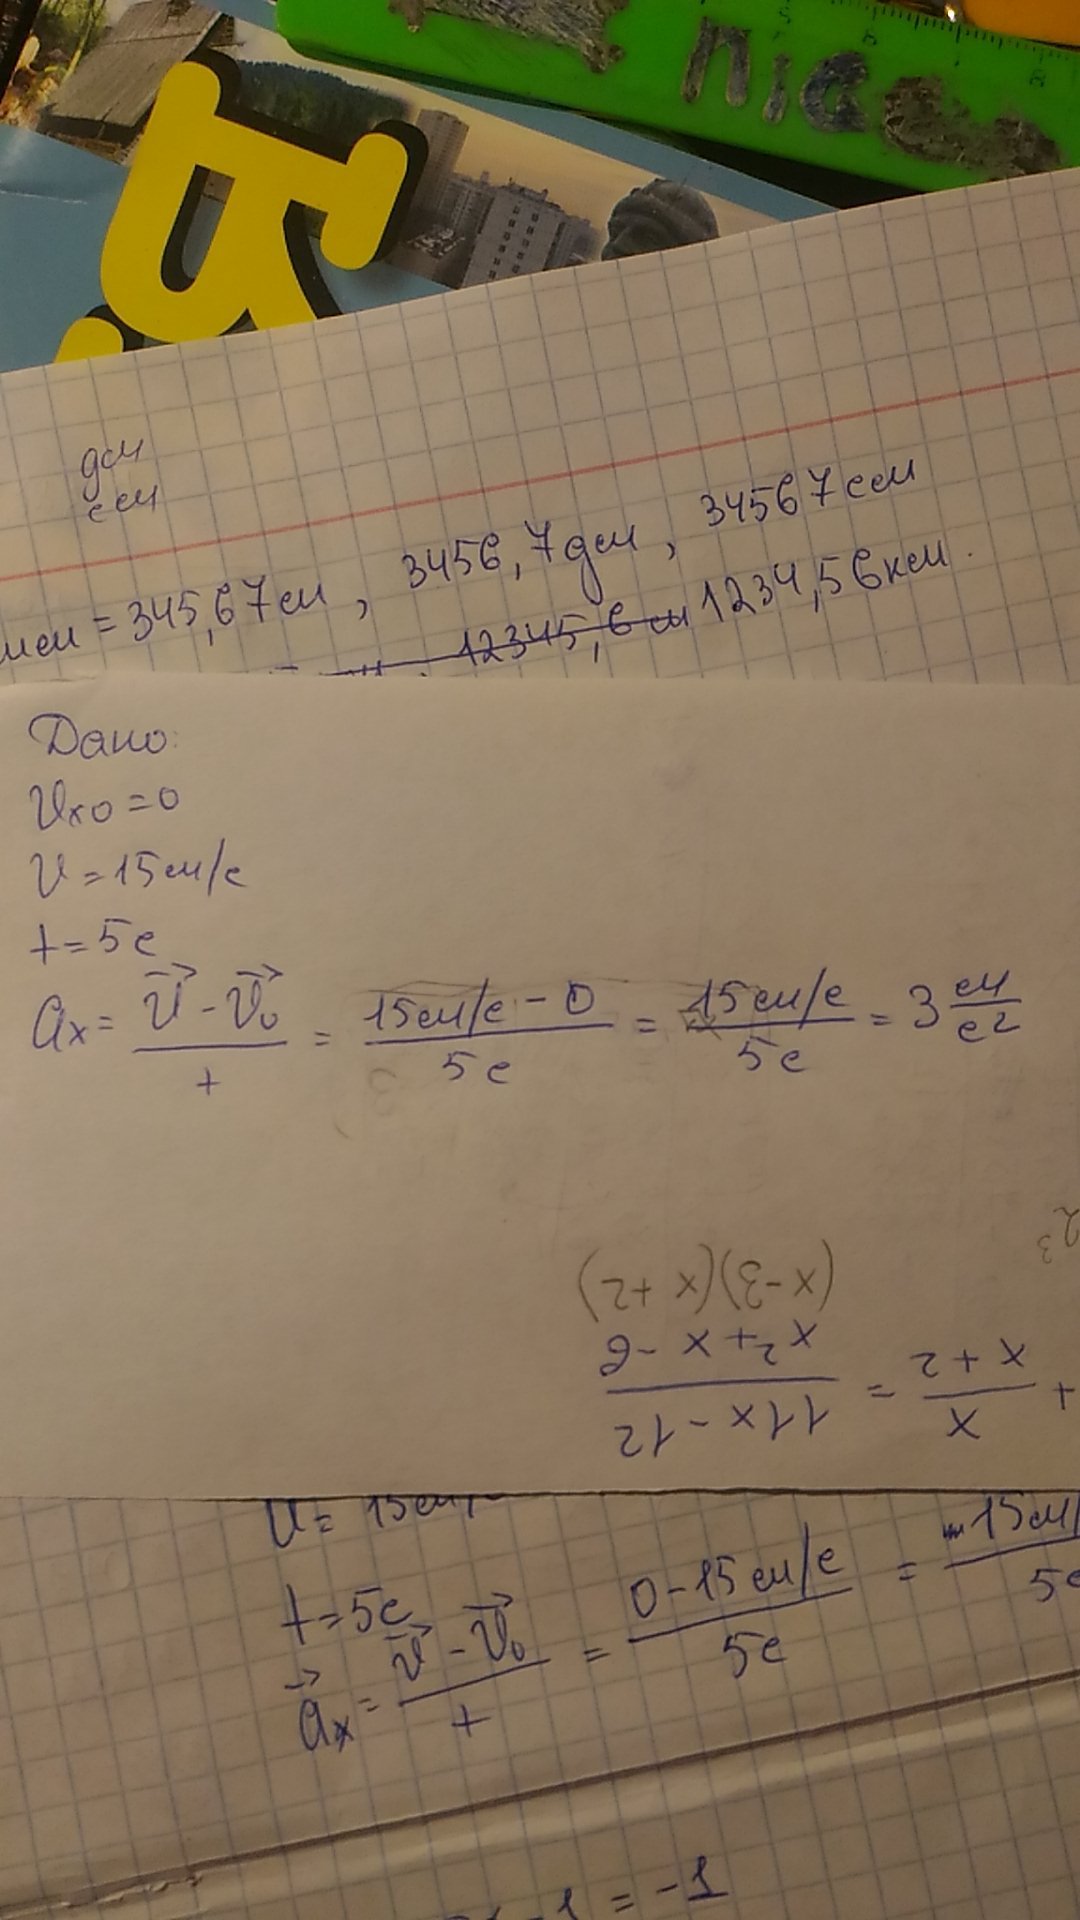 nice
дм
см
= 345,67м, 3456,7дм, 34567см
12345,6 м 1234,56км.
Дано:
Vx0 = 0
V = 15м/с
t = 5с
ax = (V⃗ - V⃗₀)/t = (15м/с - 0)/5с = 15м/с/5с = 3 м/с²
(x-3)(x+2)
+ x/(x+2) = (11x-12)/(x²+x-6)
V = 15м/
t = 5с
a⃗x = (V⃗ - V⃗₀)/t = (0-15м/с)/5с = -15м/5с
= -1